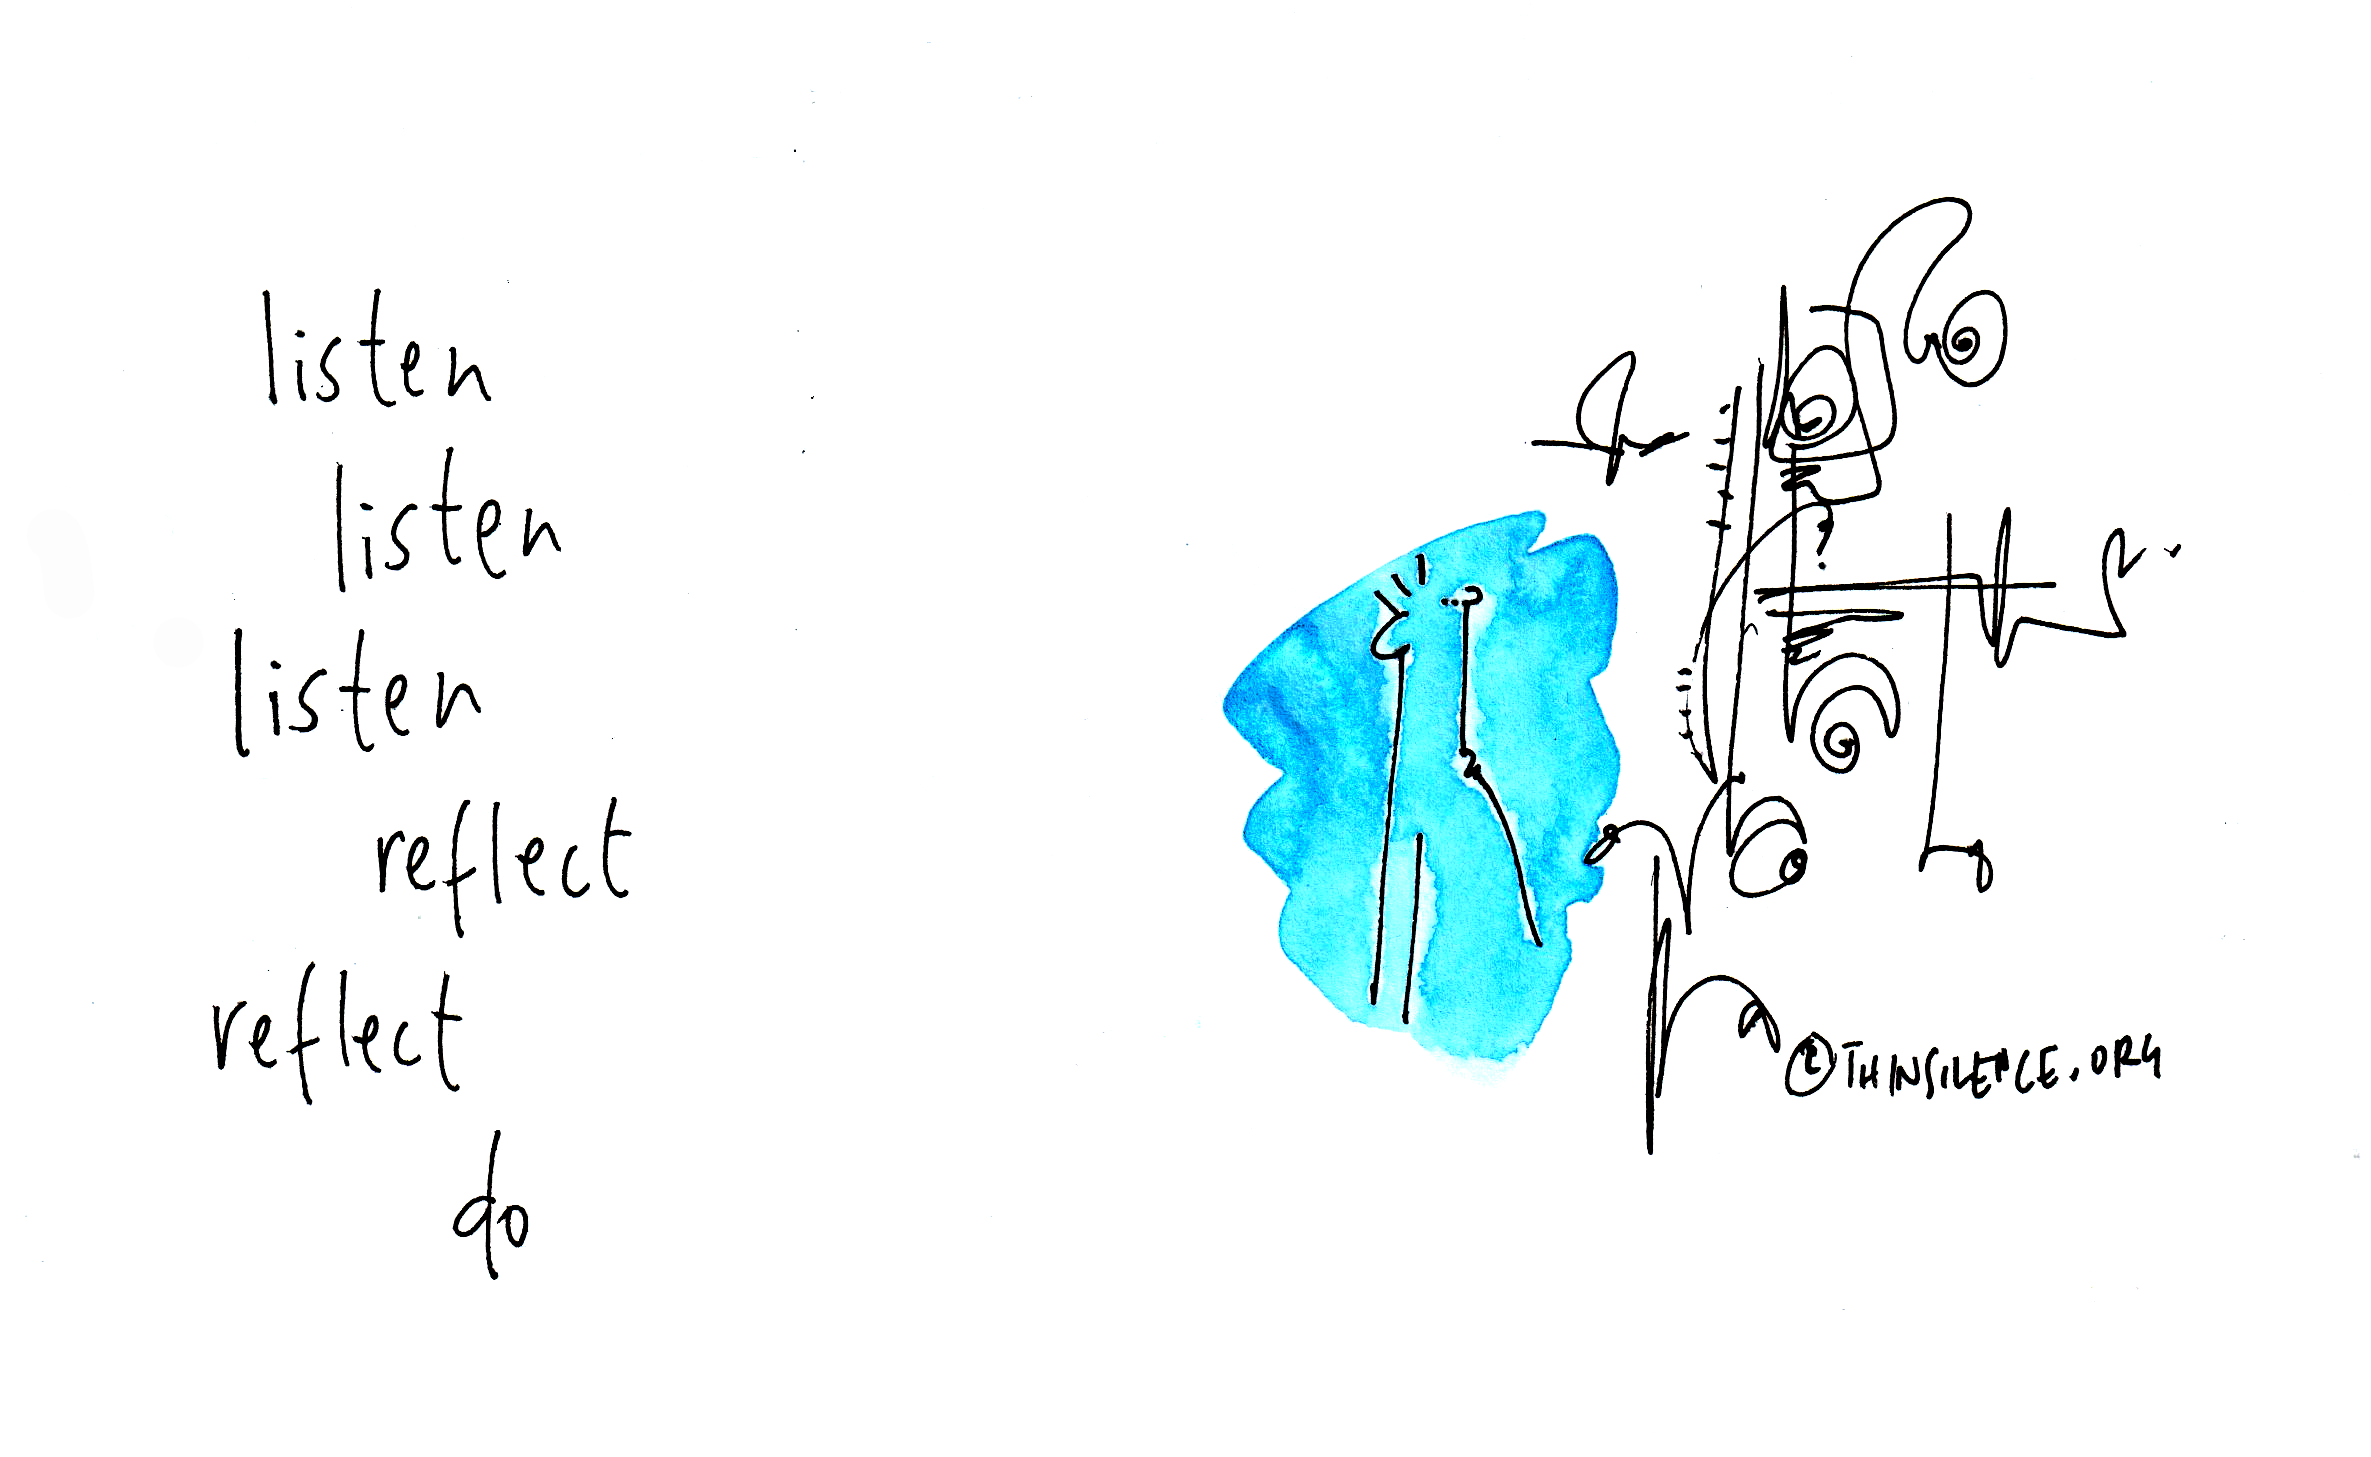 listen
listen
listen
reflect
reflect
do
©THINSILENCE.ORG